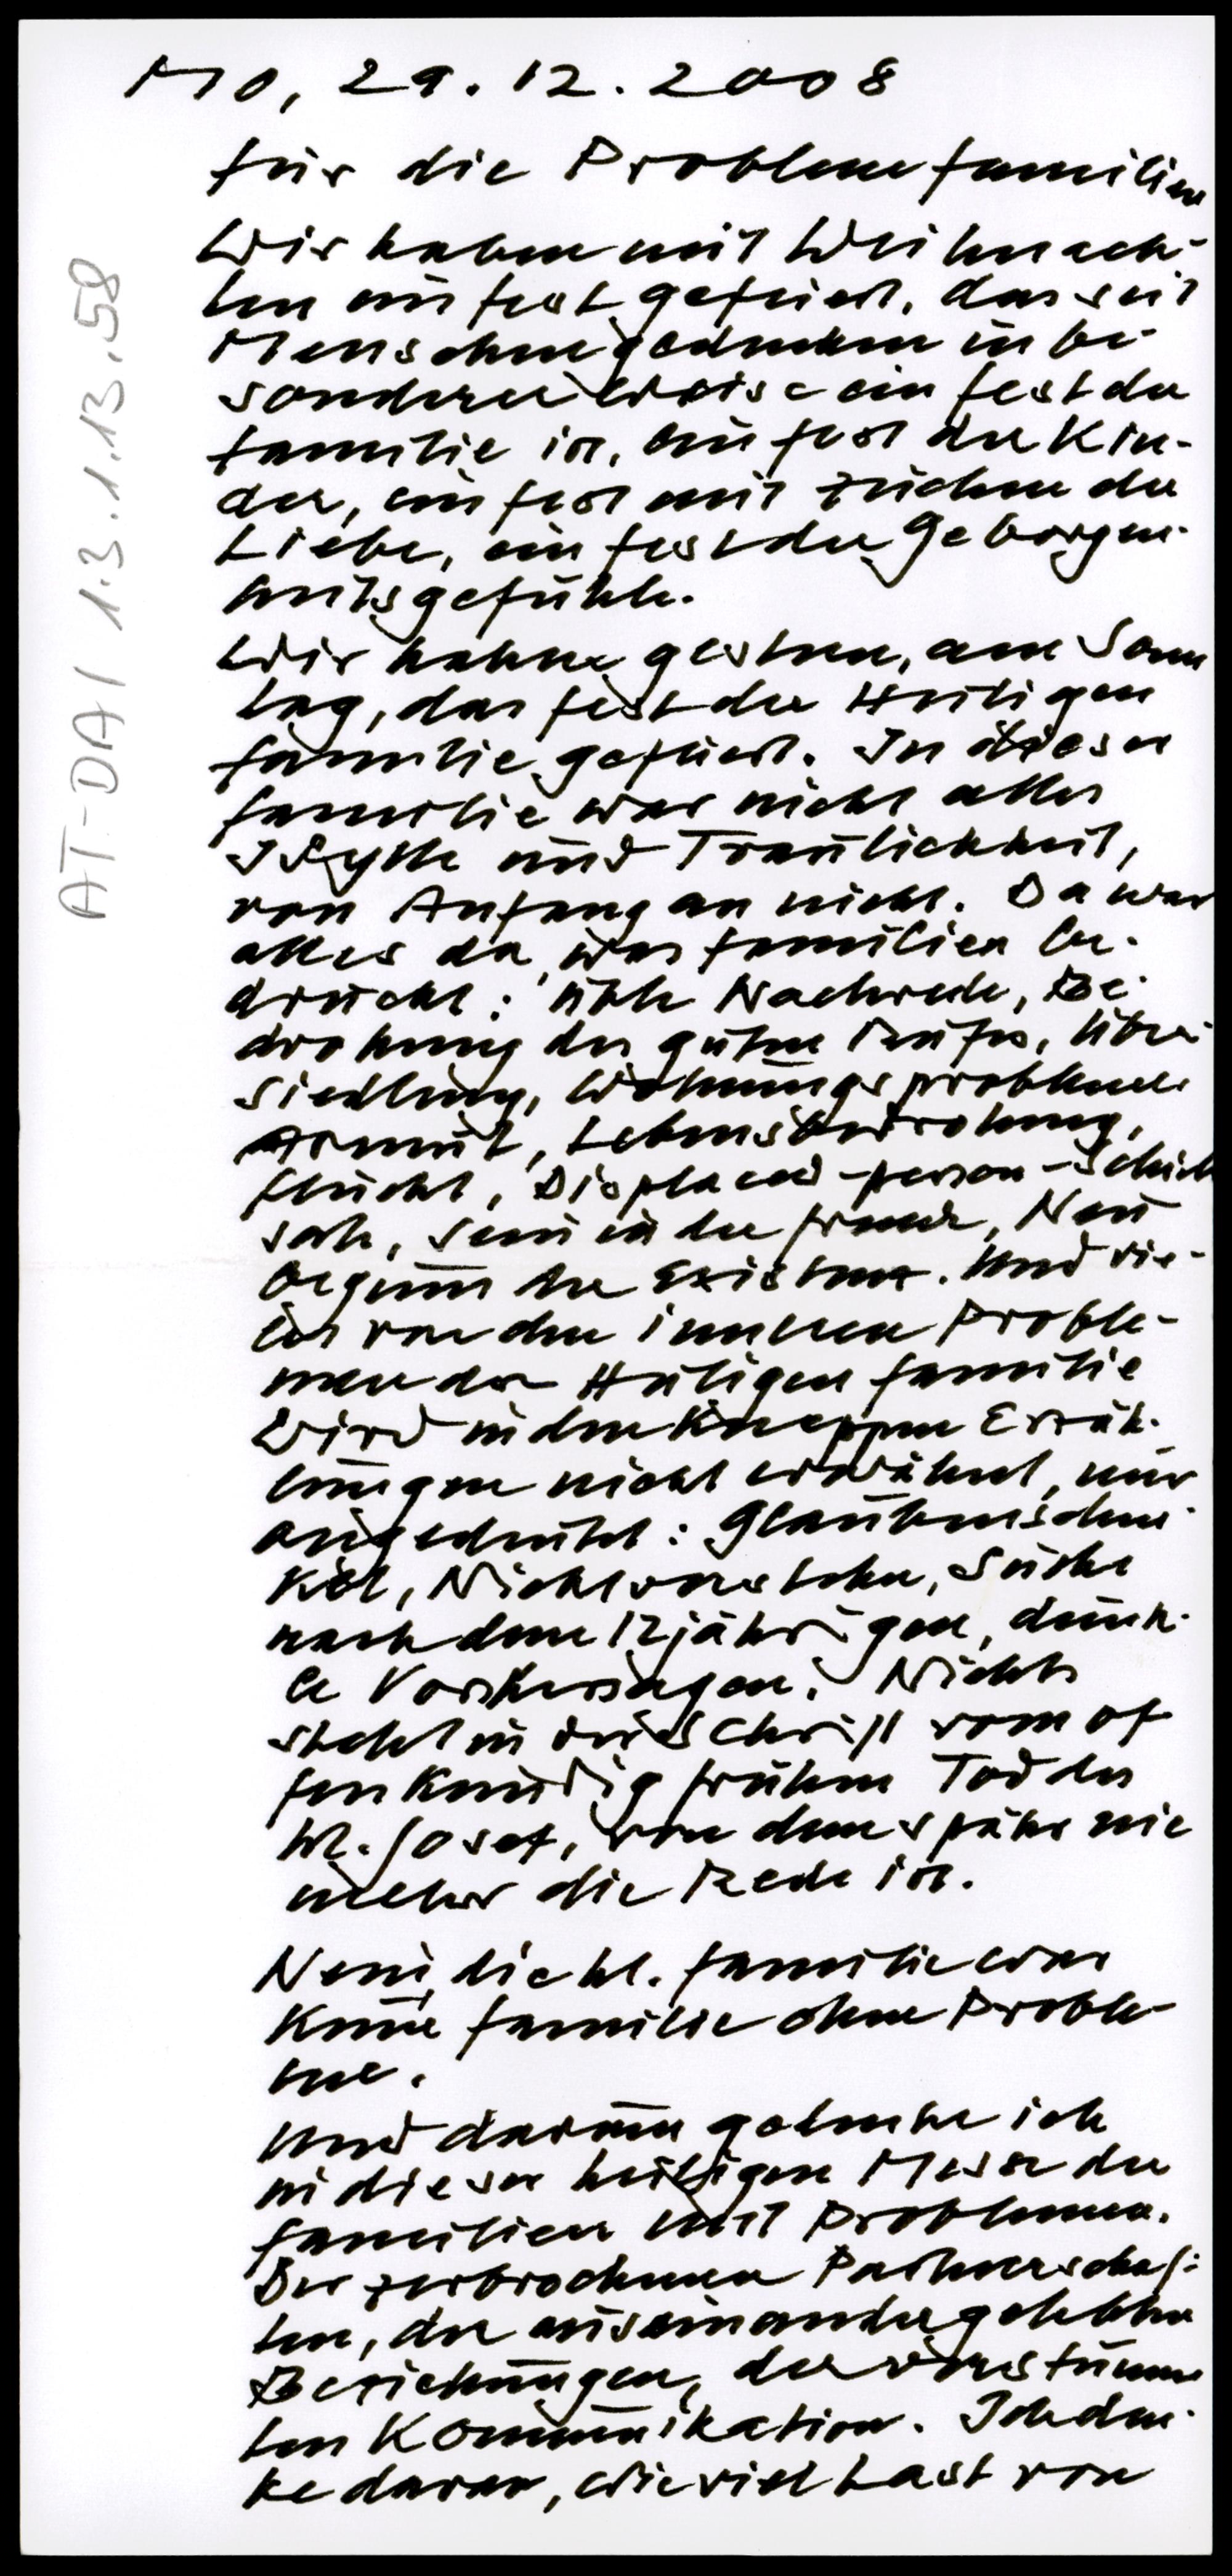 AT-DA/ 1.3.1.13.58
Mo, 29.12.2008
für die Problemfamilien
Wir haben mit Weihnach-
ten ein Fest gefeiert, das seit
Menschengedenken in be-
sonderer Weise ein Fest der
Familie ist, ein Fest der Kin-
der, ein Fest mit Zeichen der
Liebe, ein Fest der Geborgen-
heitsgefühle.
Wir haben gestern, am Sonn
tag, das Fest der Heiligen
Familie gefeiert. In dieser
Familie war nicht alles
Idylle und Traulichkeit,
von Anfang an nicht. Da war
alles da, was Familien be-
drückt: üble Nachrede, Be-
drohung des guten Rufes, Über-
siedlung, Wohnungsprobleme
Armut, Lebensbedrohung,
Flucht, Displaced-person-Schick
sale, Sein in der Fremde, Neu
beginn der Existenz. Und vie-
les von den inneren Proble-
men der Heiligen Familie
wird in den knappen Erzäh-
lungen nicht erwähnt, nur
angedeutet: Glaubensdun-
kel, Nichtverstehn, Suche
nach dem 12jährigen, dunk-
le Vorhersagen. Nichts
steht in der Schrift vom of
fenkundig frühen Tod des
hl. Josef, von dem später nie
mehr die Rede ist.
Nein, die hl. Familie war
keine Familie ohne Proble-
me.
Und darum gedenke ich
in dieser heiligen Messe der
Familien mit Problemen.
Der zerbrochenen Partnerschaf-
ten, der auseinandergelebten
Beziehungen, der verstumm
ten Kommunikation. Ich den-
ke daran, wieviel Last von